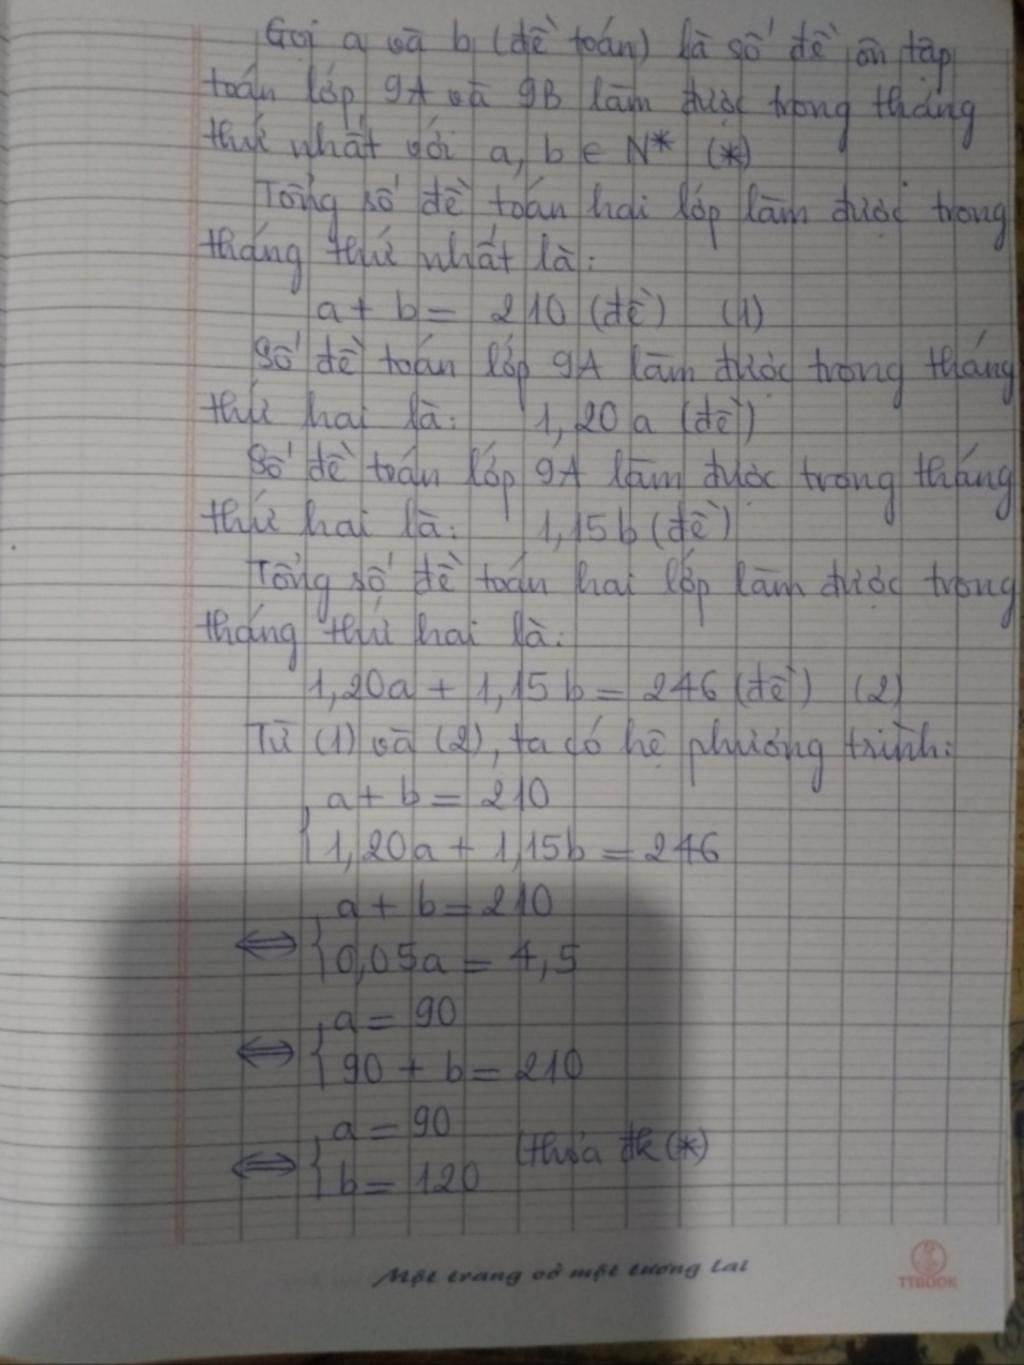 Gọi a và b (đề toán) là số đề ôn tập
toán lớp 9A và 9B làm được trong tháng
thứ nhất với a, b ∈ N* (*)
Tổng số đề toán hai lớp làm được trong
tháng thứ nhất là:
a + b = 210 (đề) (1)
Số đề toán lớp 9A làm được trong tháng
thứ hai là: 1,20a (đề)
Số đề toán lớp 9A làm được trong tháng
thứ hai là: 1,15b (đề)
Tổng số đề toán hai lớp làm được trong
tháng thứ hai là:
1,20a + 1,15b = 246 (đề) (2)
Từ (1) và (2), ta có hệ phương trình:
{ a + b = 210
1,20a + 1,15b = 246
⇔ { a + b = 210
0,05a = 4,5
⇔ { a = 90
90 + b = 210
⇔ { a = 90
b = 120 (thỏa đk (*)
Một trang vở một tương lai
TTBOOK